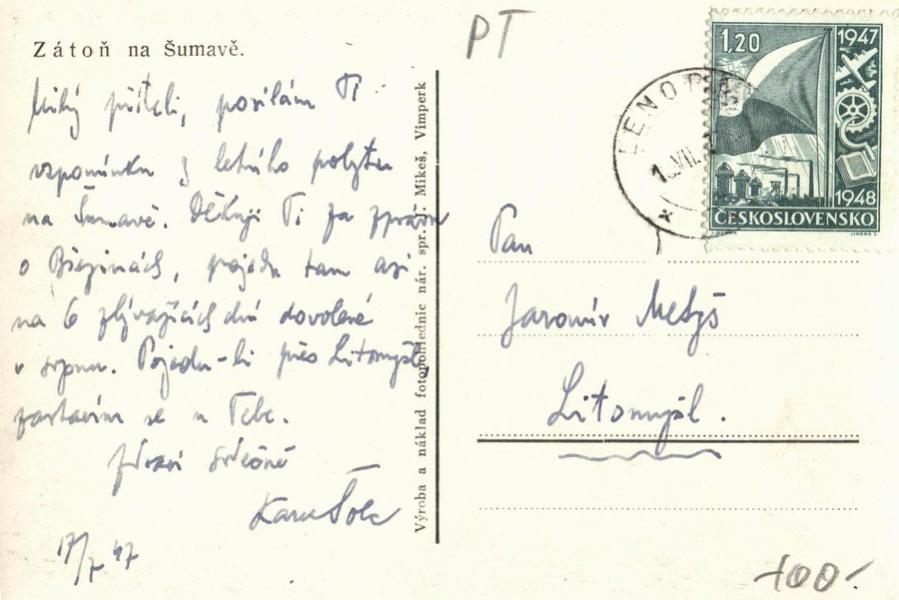 Zátoň na Šumavě.
Milý příteli, posílám Ti
vzpomínku z letního pobytu
na Šumavě. Děkuji Ti za zprávu
o Březinách, pojedu tam asi
na 6 zbývajících dní dovolené
v srpnu. Pojedu-li přes Litomyšl
zastavím se u Tebe.
Zdraví srdečně
Karel Šolc
17/7 47
Výroba a náklad fotopohlednic nár. spr. J. Mikeš, Vimperk
PT
1,20
1947
1948
ČESKOSLOVENSKO
LENORA
VII.
Pan
Jaromír Metyš
Litomyšl.
100.-